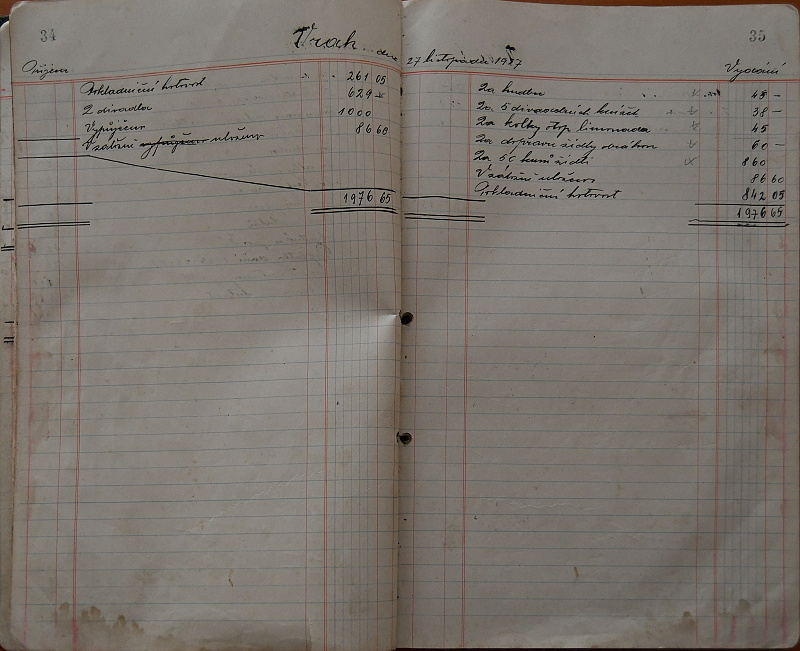 34
Vrah dne
Příjem
Pokladniční hotovost 261 05
629 -
Z divadla 1000
Vypůjčeno 86 60
Vzdělání uhrazeno
1976 65
35
27 listopadu 19
Vydání
Za hudbu 45 -
Za 5 divadelních knížek 38 -
Za kolky stop limonada 45
Za dopravu židly 60 -
Za 50 kusů židlí 860
86 60
Pokladniční hotovost 842 05
1976 65